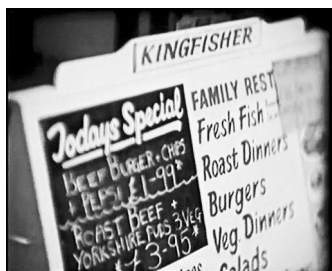 KINGFISHER
Todays Special
BEEF BURGER + CHIPS
+ PEPSI £1-99*
ROAST BEEF +
YORKSHIRE PUDS 3 VEG
£3-95*
FAMILY REST
Fresh Fish
Roast Dinners
Burgers
Veg. Dinners
Salads